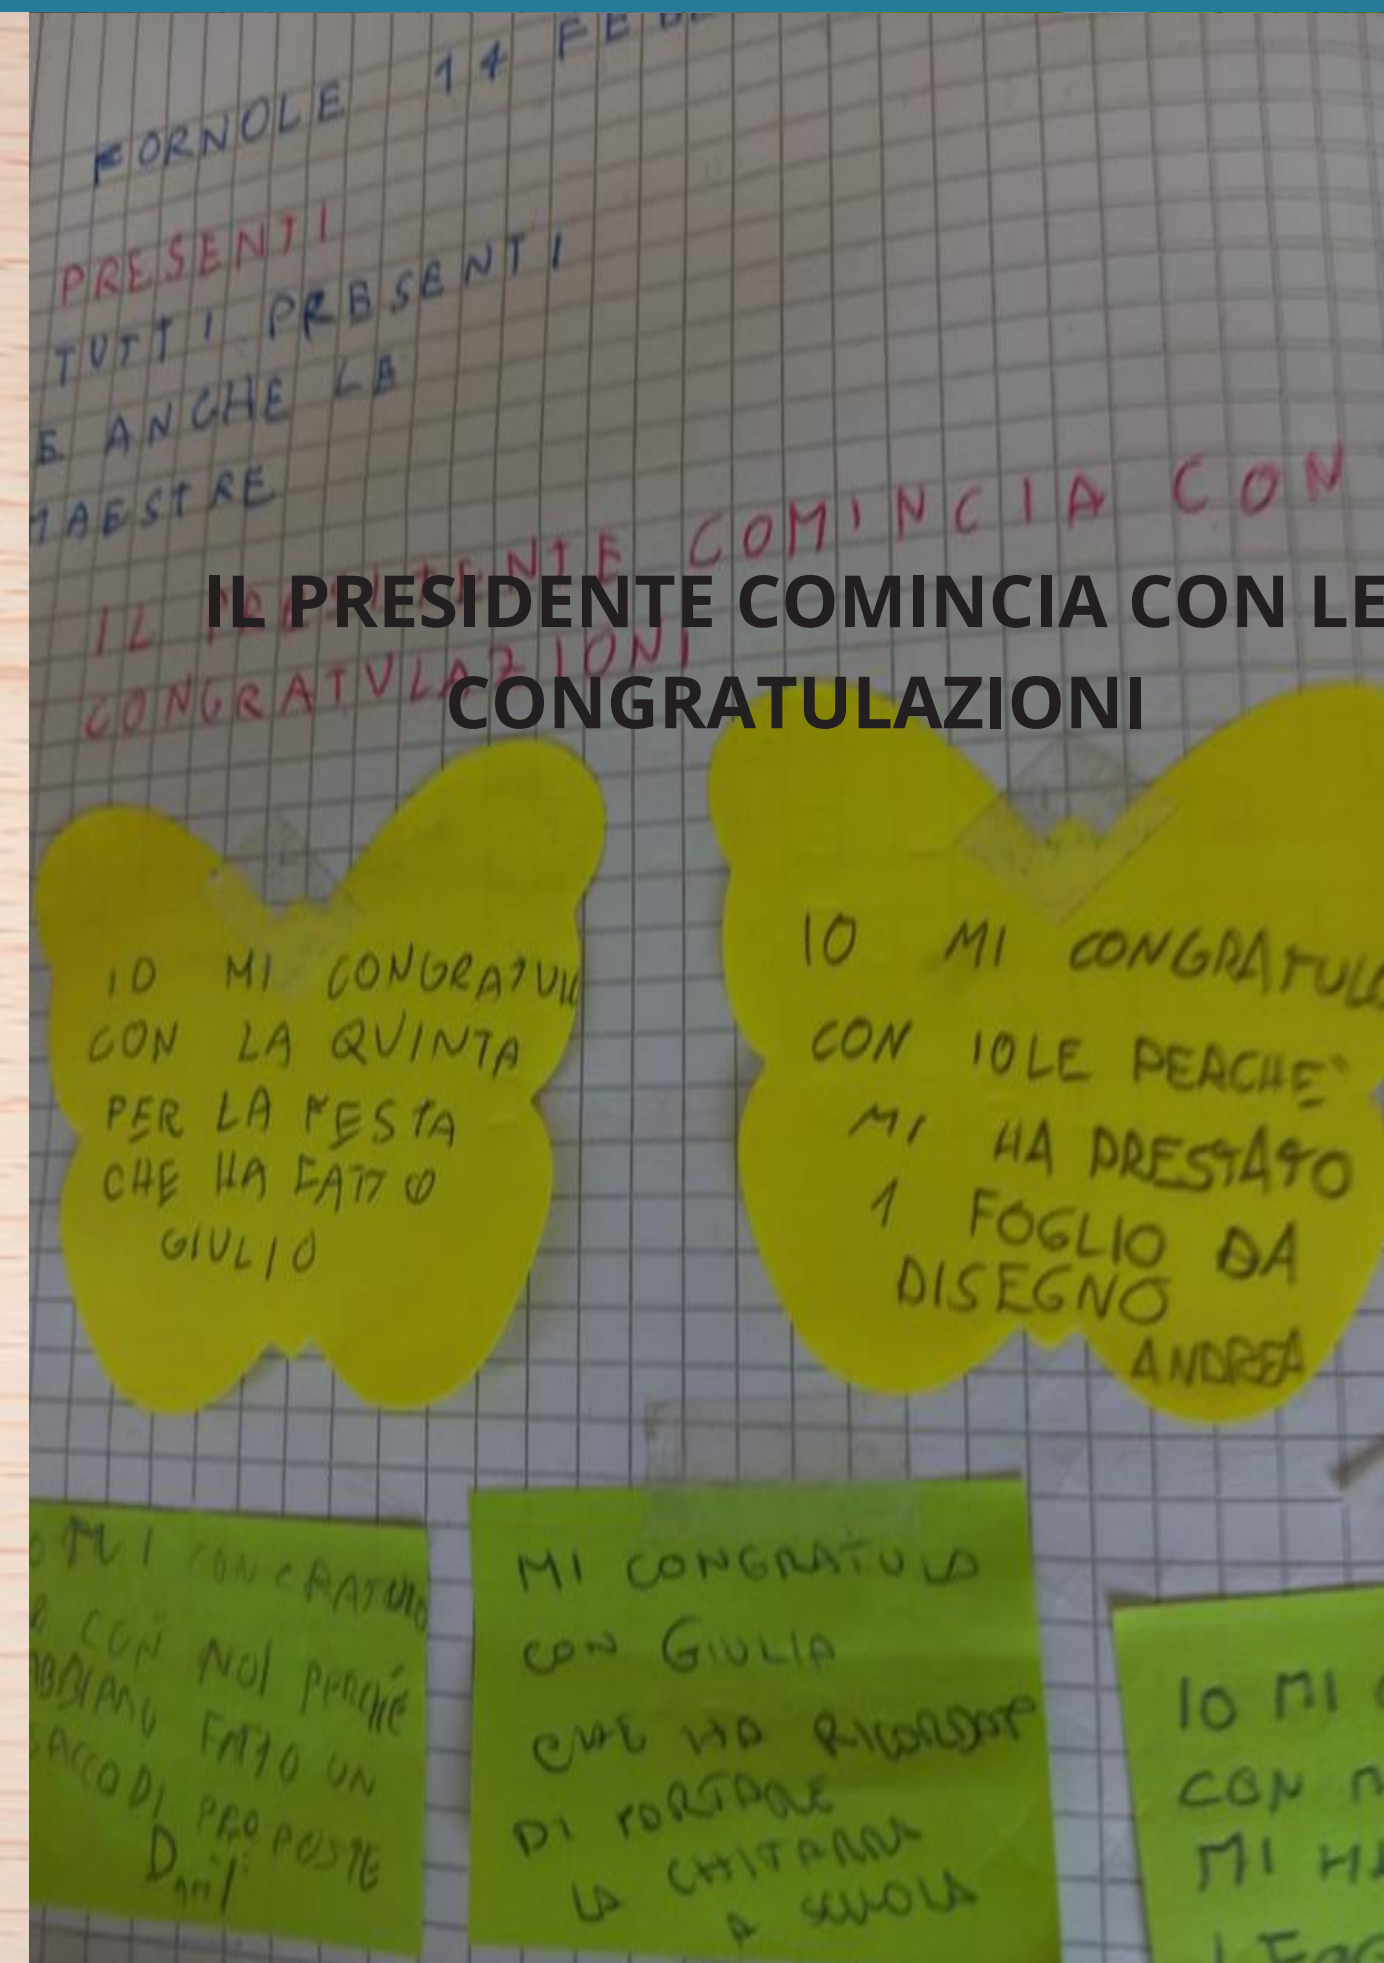 FORNOLE 14 FEB
PRESENTI
TUTTI PRESENTI
E ANCHE LE
MAESTRE
IL PRESIDENTE COMINCIA CON
CONGRATULAZIONI
IL PRESIDENTE COMINCIA CON LE
CONGRATULAZIONI
IO MI CONGRATUL
CON LA QUINTA
PER LA FESTA
CHE HA FATTO
GIULIO
IO MI CONGRATULO
CON IOLE PERCHE'
MI HA PRESTATO
1 FOGLIO DA
DISEGNO
ANDREA
MI CONGRATULO
CON NOI PERCHÉ
ABBIAMO FATTO UN
SACCO DI PROPOSTE
MI CONGRATULO
CON GIULIA
CHE HA RICORDATO
DI PORTARE
LA CHITARRA
A SCUOLA
IO MI
CON
MI HA